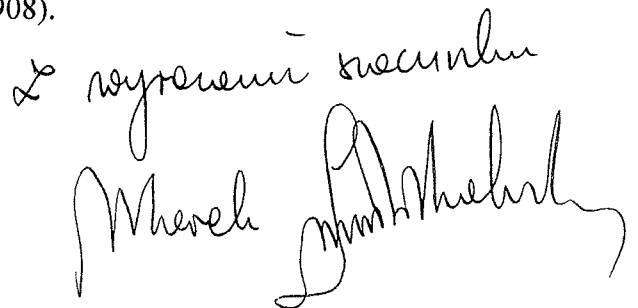 908).
Z wyrazami szacunku
Marek